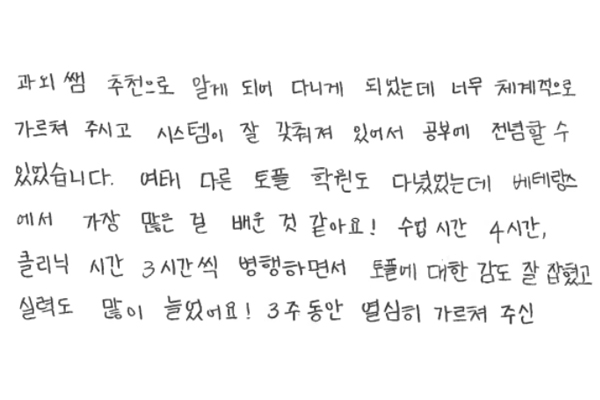 과외쌤 추천으로 알게 되어 다니게 되었는데 너무 체계적으로
가르쳐 주시고 시스템이 잘 갖춰져 있어서 공부에 전념할 수
있었습니다. 여태 다른 토플 학원도 다녔었는데 베테랑스
에서 가장 많은 걸 배운 것 같아요! 수업 시간 4시간,
클리닉 시간 3시간씩 병행하면서 토플에 대한 감도 잘 잡혔고
실력도 많이 늘었어요! 3주 동안 열심히 가르쳐 주신